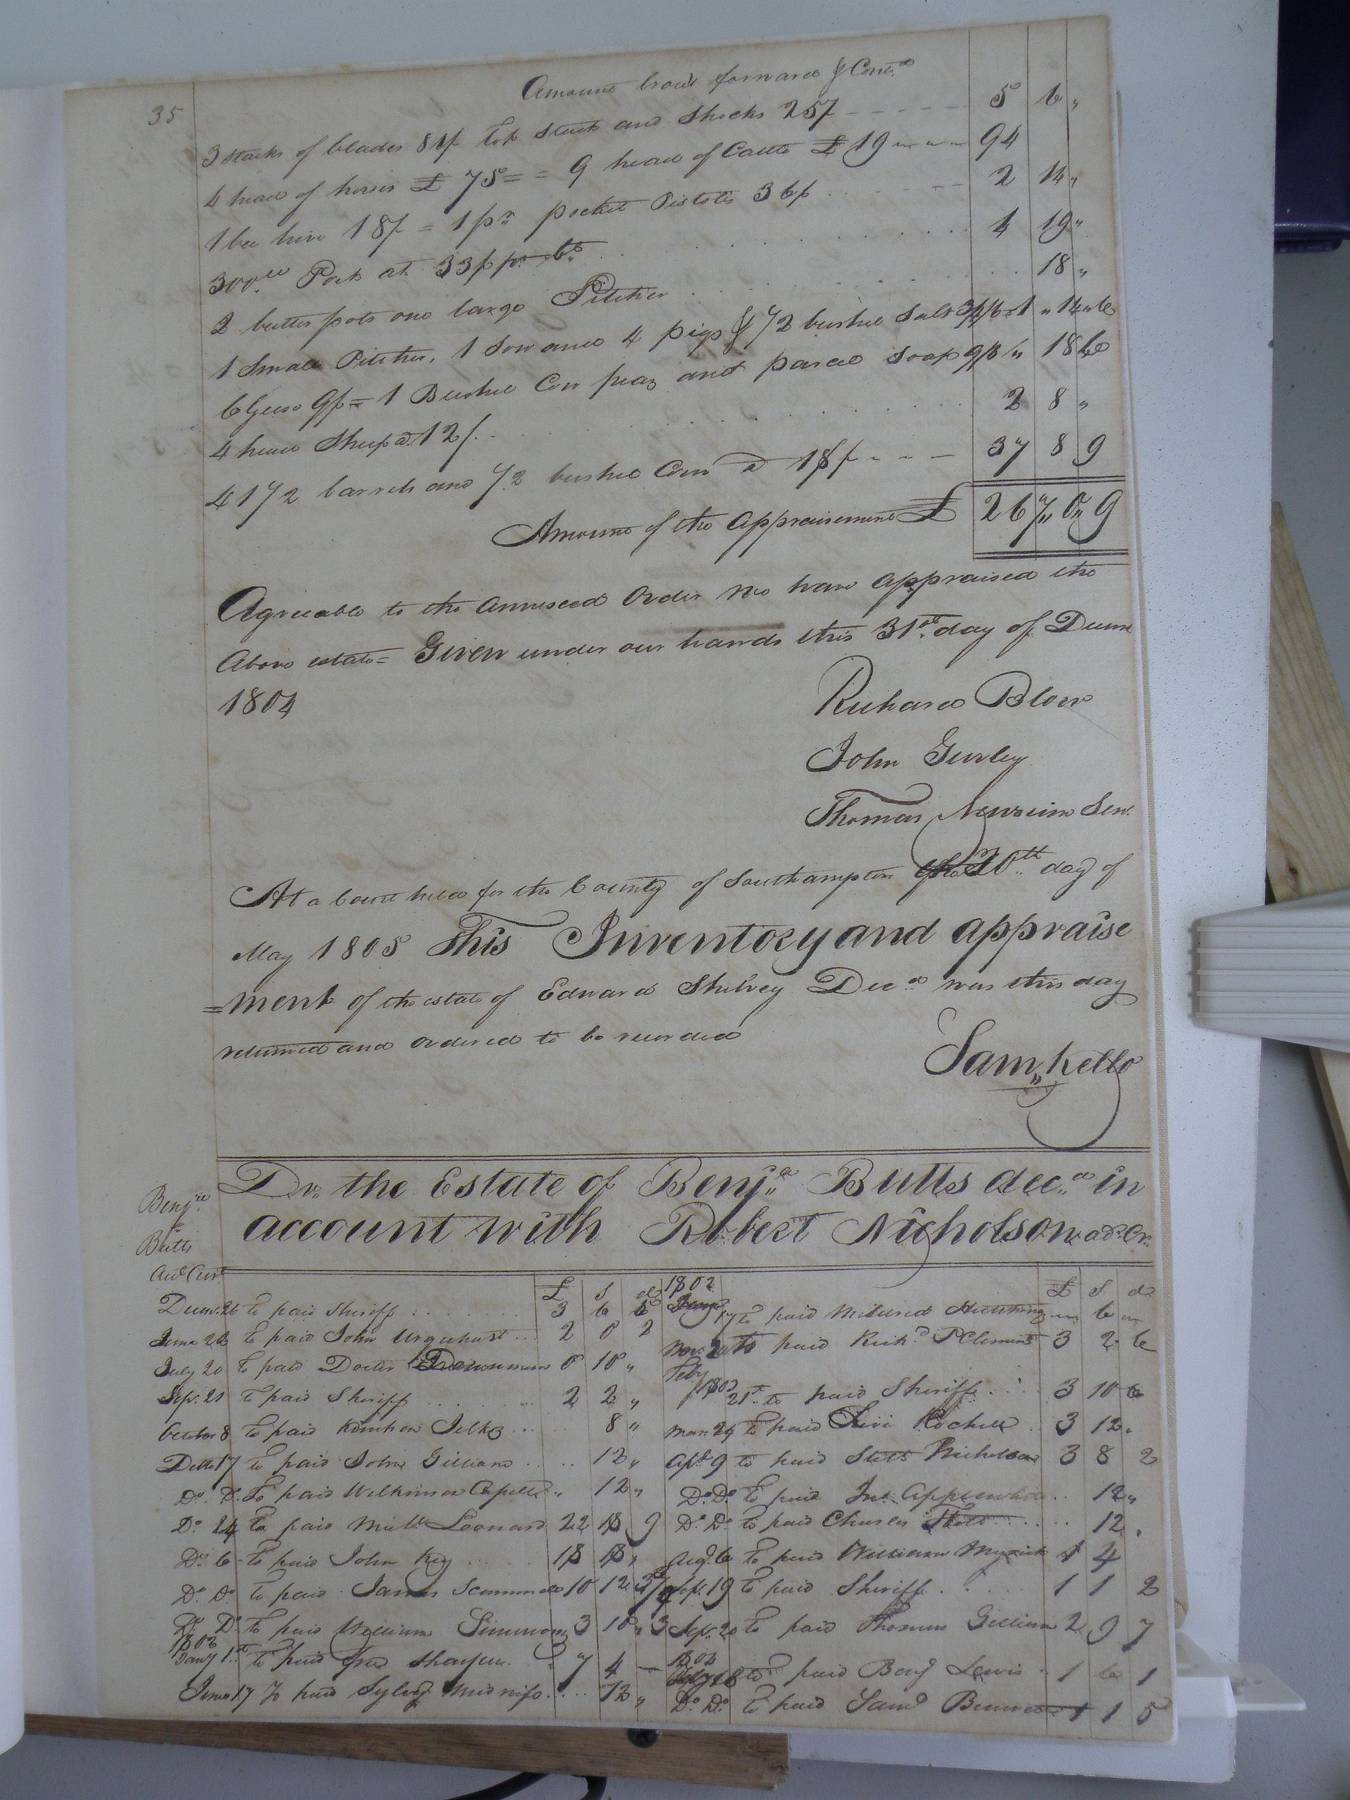 35
Amount brot forward & Cont.d
3 stacks of blades 81/ top stack and shucks 25/ 5 6 "
4 head of horses £ 75 = = 9 head of Cattle £ 19 94
1 bee hive 18/ = 1 pr pocket Pistols 36/ 2 14 "
300 lb Pork at 33/ pr Ct 4 19 "
2 butter pots one large Pitcher 18 "
1 Small Pitcher, 1 Sow and 4 pigs & 1/2 bushel Salt 1 " 14 " 6
6 Geese 9/ = 1 Bushel Corn peas and parcel Soap 9/ " 18 6
4 head Sheep @ 12/. 2 8 "
41 1/2 barrels and 1/2 bushel Corn @ 18/ 37 8 9
Amount of the appraisement £ 267 " 0 " 9
Agreeable to the annexed Order We have appraised the
Above estate = Given under our hands this 31st day of Decem
1804
Richard Blow
John Gurley
Thomas Newsum Senr.
At a Court held for the County of Southampton the 20th day of
May 1805 This Inventory and appraise
=ment of the estate of Edward Shelvey Dec.d was this day
returned and ordered to be recorded
Sam,, Kello
Benj.n
Butts
Acct Curt
Dr. the Estate of Benj.a Butts dec.d in
account with Robert Nicholson ad. Cr.
£ S d 1802 £ S d
Decem 26 to paid Sheriff 3 6 6
Jany 17 to paid Mildred 6
June 26 to paid John Urquhart 2 0 2
Nov. 20 to paid Rich.d P Clements 3 2 6
July 20 to paid Doctor 0 10 "
Feby 1803
Sept. 21 to paid Sheriff 2 2 "
21st to paid Sheriff 3 10 6
October 8 to paid 8 "
Mar 29 to paid Levi Rochelle 3 12 "
Ditto 17 to paid John Gilliam 12 "
Apl. 9 to paid Nicholson 3 8 2
Do. D. To paid Wilkinson Capell " 12 "
Do. Do. to paid Jno. Applewhite 12 "
Do. 24 to paid Leonard 22 18 9
Do. Do. to paid Charles 12 "
Do. 6 to paid John Key 18 18 "
Aug. 6 to paid William Myrick 1 4
Do. Do. to paid James 10 12
Sept 19 to paid Sheriff 1 1 2
Do. Do. to paid William Simmons 3 10 " 3
Sept. 20 to paid Thomas Gilliam 2 9 7
1803
Jany 1st to paid 7 4
to paid Benj Lewis 1 6 1
June 17 To paid 12 "
Do. Do. to paid Saml 1 1 5